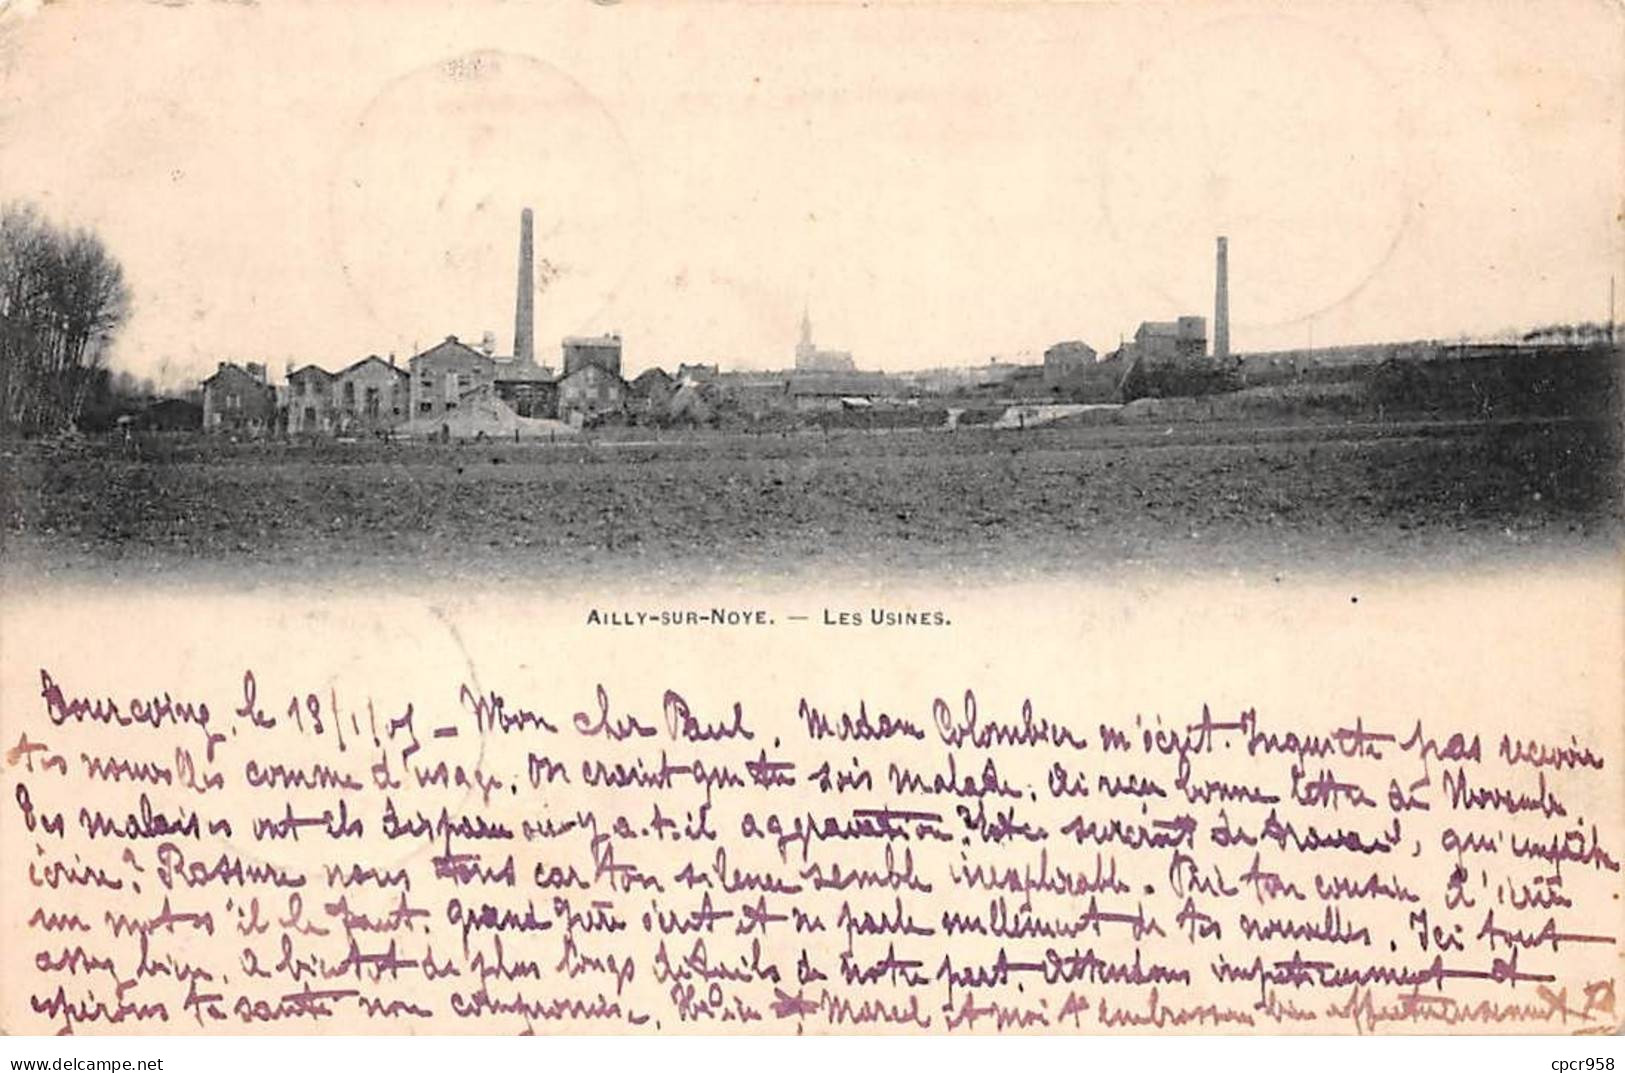 AILLY-SUR-NOYE. — LES USINES.
Tourcoing, le 13/1/05 – Mon cher Paul, Madam Colombier m'écrit. Inquiète pas recevoir
tes nouvelles comme d'usage. On craint que tu sois malade. Ai reçu bonne lettre du Novembre
Ses malaises ont ils disparu ou y a-t-il aggravation? surcroît de travail, qui empêche
écrire? Rassure nous tous car ton silence semble inexplicable. Prie ton cousin d'écrire
un mot s'il le faut. Grand Père écrit et ne parle nullement de tes nouvelles. Ici tout
assez bien. A bientôt de plus longs détails de notre part. Attendons impatiemment et
espérons ta santé non compromise. Marcel et moi t'embrassons bien affectueusement
www.delcampe.net
cpcr958